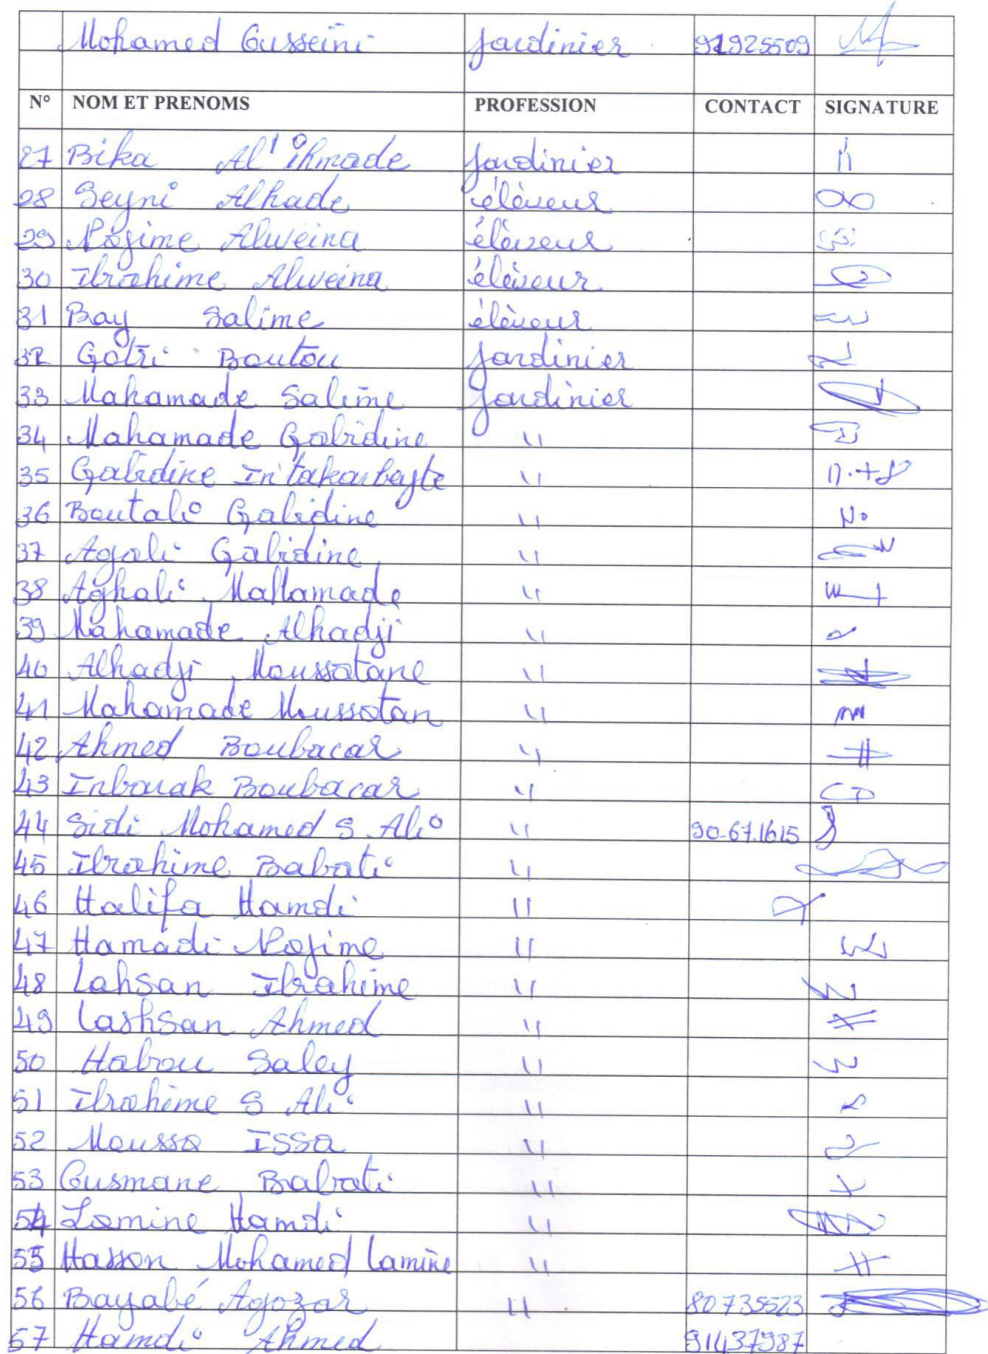 Mohamed Ousseini Jardinier 91925509
N° NOM ET PRENOMS PROFESSION CONTACT SIGNATURE
27 Bika Al'ihmade Jardinier
28 Seyni Alhade éleveur
29 Alweina éleveur
30 Ibrahime Alweina éleveur
31 Bay Salime éleveur
32 Gotri Boutou Jardinier
33 Mahamade Salime Jardinier
34 Mahamade Gabidine "
35 Gabidine "
36 Boutali Gabidine "
37 Agali Gabidine "
38 Aghali Mahamade "
39 Mahamade Alhadji "
40 Alhadji Moussatane "
41 Mahamade Moussotan "
42 Ahmed Boubacar "
43 Inbarak Boubacar "
44 Sidi Mohamed S Ali " 90.67.1615
45 Ibrahime Babati "
46 Halifa Hamdi "
47 Hamadi "
48 Lahsan Ibrahime "
49 Lashsan Ahmed "
50 Habou Saley "
51 Ibrahime S Ali "
52 Moussa ISSA "
53 Ousmane Babati "
54 Lamine Hamdi "
55 Hasson Mohamed Lamine "
56 Bayabé Agozar " 80735523
57 Hamdi Ahmed 91437987